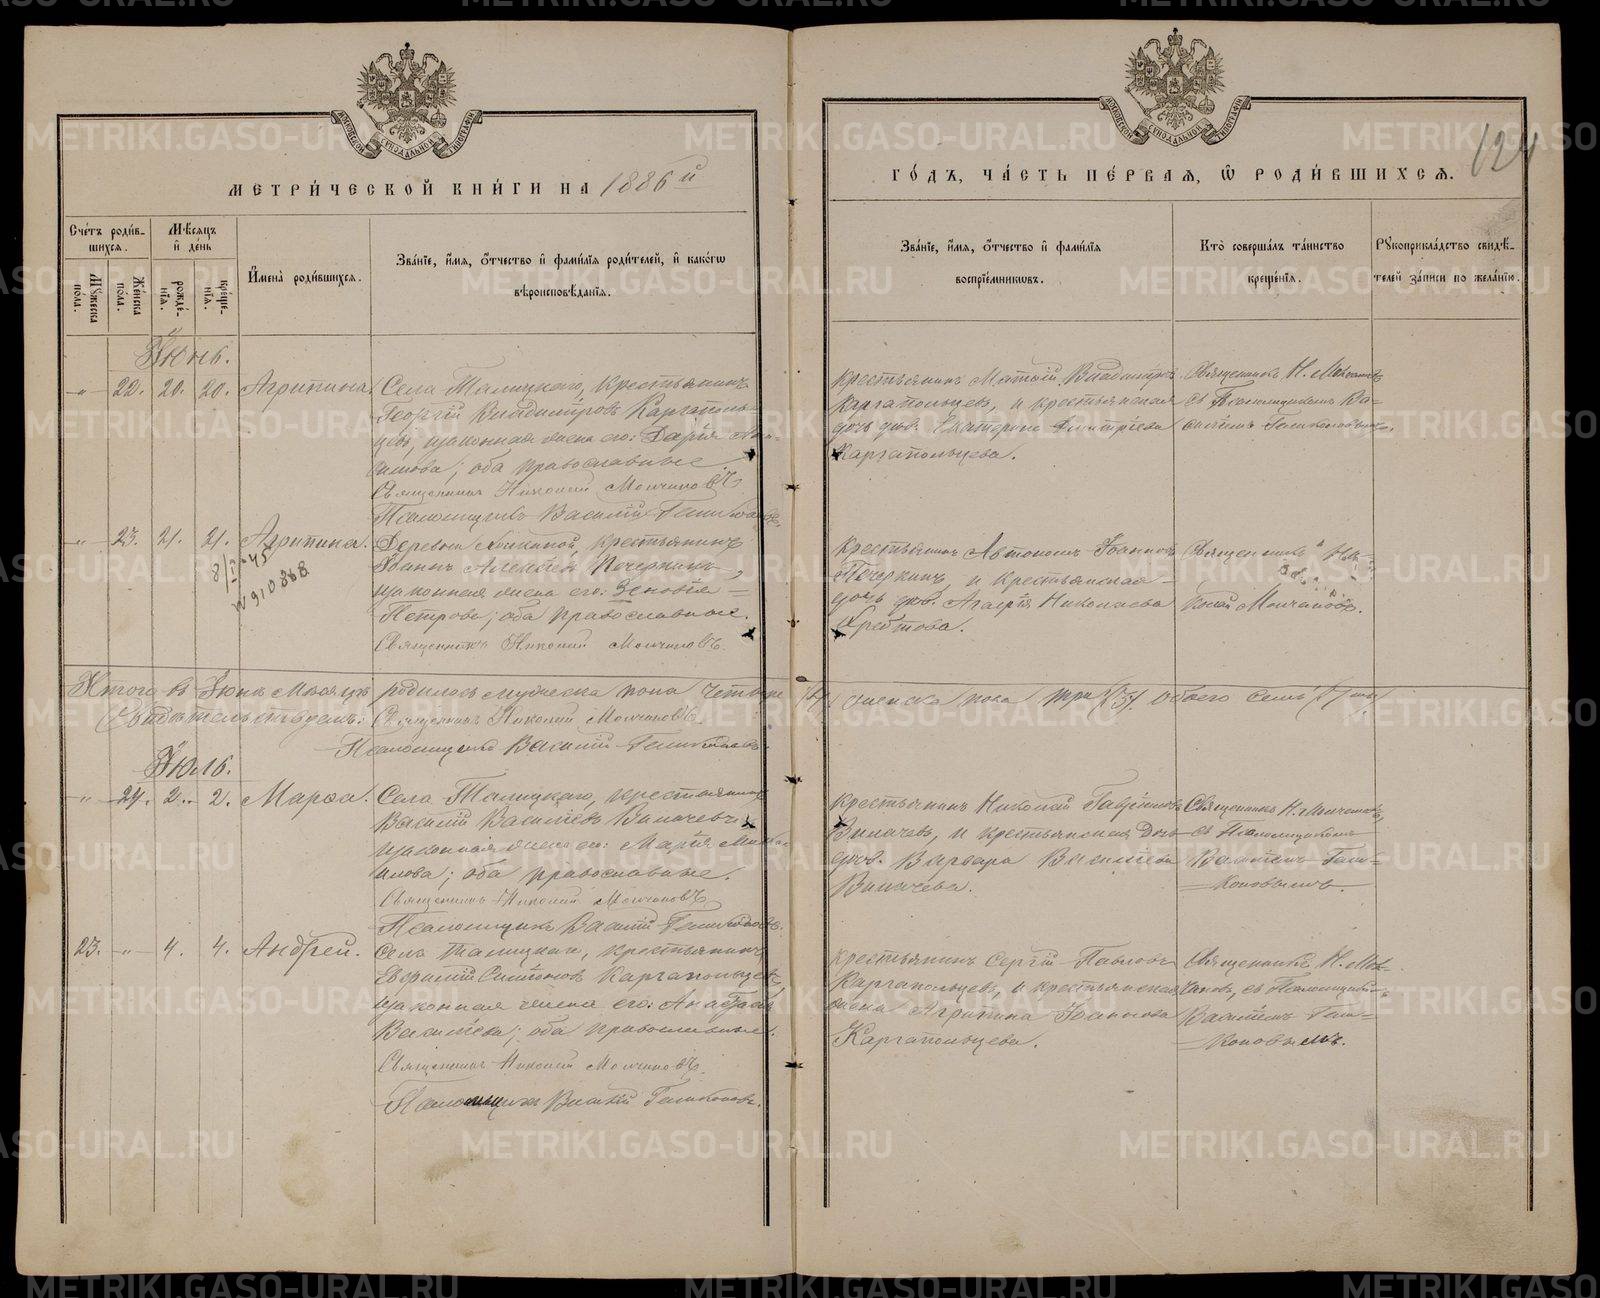 МЕТРИ́ЧЕСКОЙ КНИ́ГИ НА 1886й
ГО́ДЪ, ЧА́СТЬ ПЕ́РВАЯ, Ѿ РОДИ́ВШИХСѦ.
124
Сче́тъ роди́в-
шихся.
Мѣ́сяцъ
и҆ де́нь
Му́жеска
по́ла.
Же́нска
по́ла.
рожде́-
нїя.
креще́-
нїя.
И҆мена̀ роди́вшихся.
Зва́нїе, и҆́мя, ѻ҆́тчество и҆ фами́лїя роди́телей, и҆ како́гѡ
вѣроисповѣ́данїя.
Зва́нїе, и҆́мя, ѻ҆́тчество и҆ фами́лїя
воспрїе́мникѡвъ.
Кто̀ соверша́лъ та́инство
креще́нїя.
Рꙋкоприкла́дство свидѣ́-
телей за́писи по жела́нїю.
Іюнь.
-„- 22. 20. 20. Агрипина. Села Талицкаго, крестьянинъ
Георгій Владиміровъ Каргаполь-
цевъ, законная жена его: Дарія
симова; оба православные
Священникъ Николай Молчановъ
Псаломщикъ Василій
крестьянинъ Матѳій Владиміровъ
Каргапольцевъ, и крестьянская
дочь дѣв. Екатерина Димитріева
Каргапольцева.
Священникъ Н. Молчановъ
съ Псаломщикомъ Ва-
силіемъ
-„- 23. 21. 21. Агрипина. Деревни крестьянинъ
Іоаннъ Алексѣевъ Печеркинъ,
законная жена его: Зеновія
Петрова; оба православные.
Священникъ Николай Молчановъ.
8/I-45
№ 910868
Крестьянинъ Автономъ Іоанновъ
Печеркинъ, и крестьянская
дочь дѣв. Агаѳія Николаева
Священникъ Ни-
колай Молчановъ.
Итого въ Іюнѣ мѣсяцѣ родилось мужеска пола четыре /4/ женска пола три /3/. Обоего семь /7/
Свидѣтельствуемъ: Священникъ Николай Молчановъ.
Псаломщикъ Василій
Іюль.
-„- 24. 2. 2. Марѳа. Села Талицкаго, крестьянинъ
Василій Васильевъ
законная жена его: Марія
илова; оба православные.
Священникъ Николай Молчановъ
Псаломщикъ Василій
крестьянинъ Николай Гавриловъ
и крестьянская дочь
дѣв. Варвара Васильева
Священникъ Н. Молчановъ,
съ Псаломщикомъ
Василіемъ
коновымъ.
23. -„- 4. 4. Андрей. Села Талицкаго, крестьянинъ
Евфимій Симоновъ Каргапольцевъ,
законная жена его:
Васильева; оба православные.
Священникъ Николай Молчановъ.
Псаломщикъ Василій
крестьянинъ Сергій Павловъ
Каргапольцевъ, и крестьянская
жена Агрипина Іоаннова
Каргапольцева.
Священникъ Н. Мол-
чановъ, съ Псаломщикомъ
Василіемъ
коновымъ.
METRIKI.GASO-URAL.RU